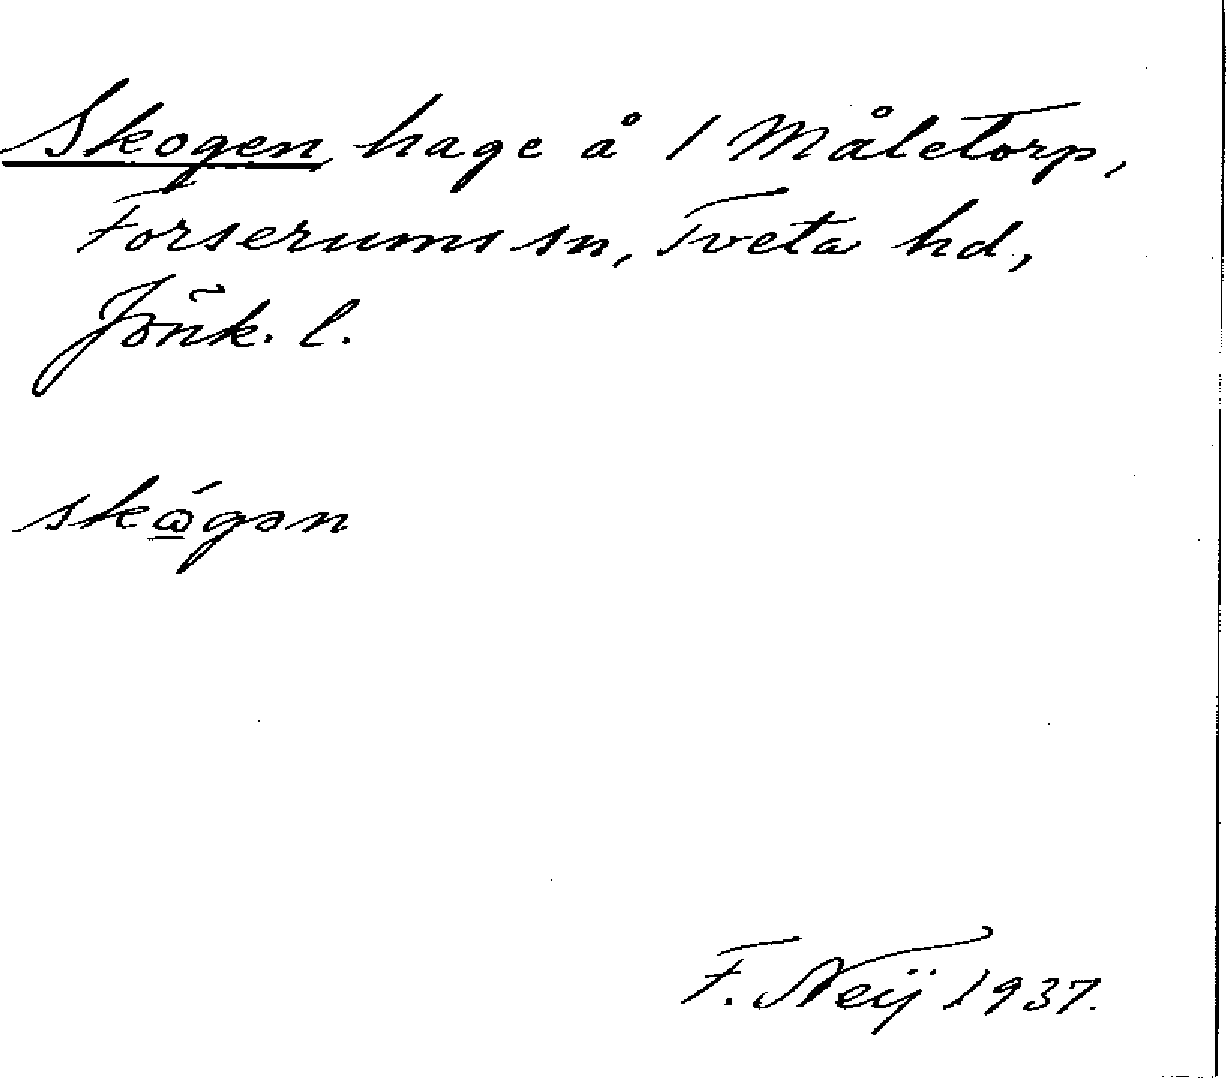 Skogen, hage å 1 Måletorp,
Forserums sn, Tveta hd,
Jönk. l.
skɷ̲́gən
F. Neij 1937.